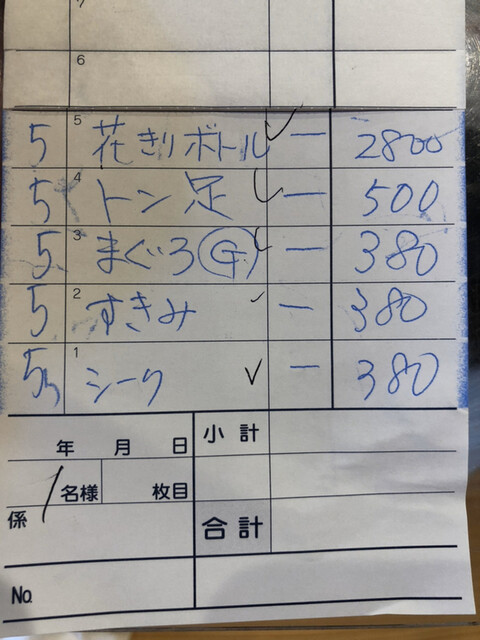 7
6
5 5 花きりボトル ✓ ー 2800
5 4 トン足 ✓ ー 500
5 3 まぐろ Ⓖ ✓ ー 380
5 2 すきみ ✓ ー 380
1 シーク ✓ ー 380
年 月 日 小計
1 名様 枚目
係 合計
No.